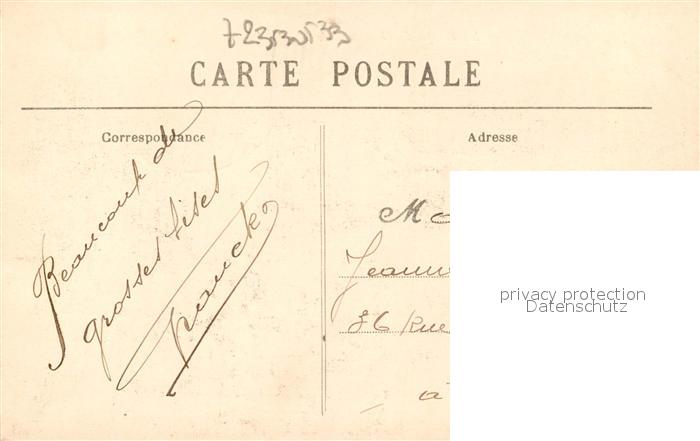 72353053
CARTE POSTALE
Correspondance
Adresse
Beaucoup de
grosses bises
Franck
M
Jeann
36 Rue
à
privacy protection
Datenschutz